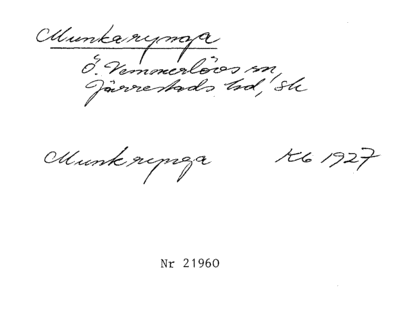 Munkarynga
Ö. Vemmerlövs sn,
Järrestads hd, Sk
Munkrynga Kb 1927
Nr 21960